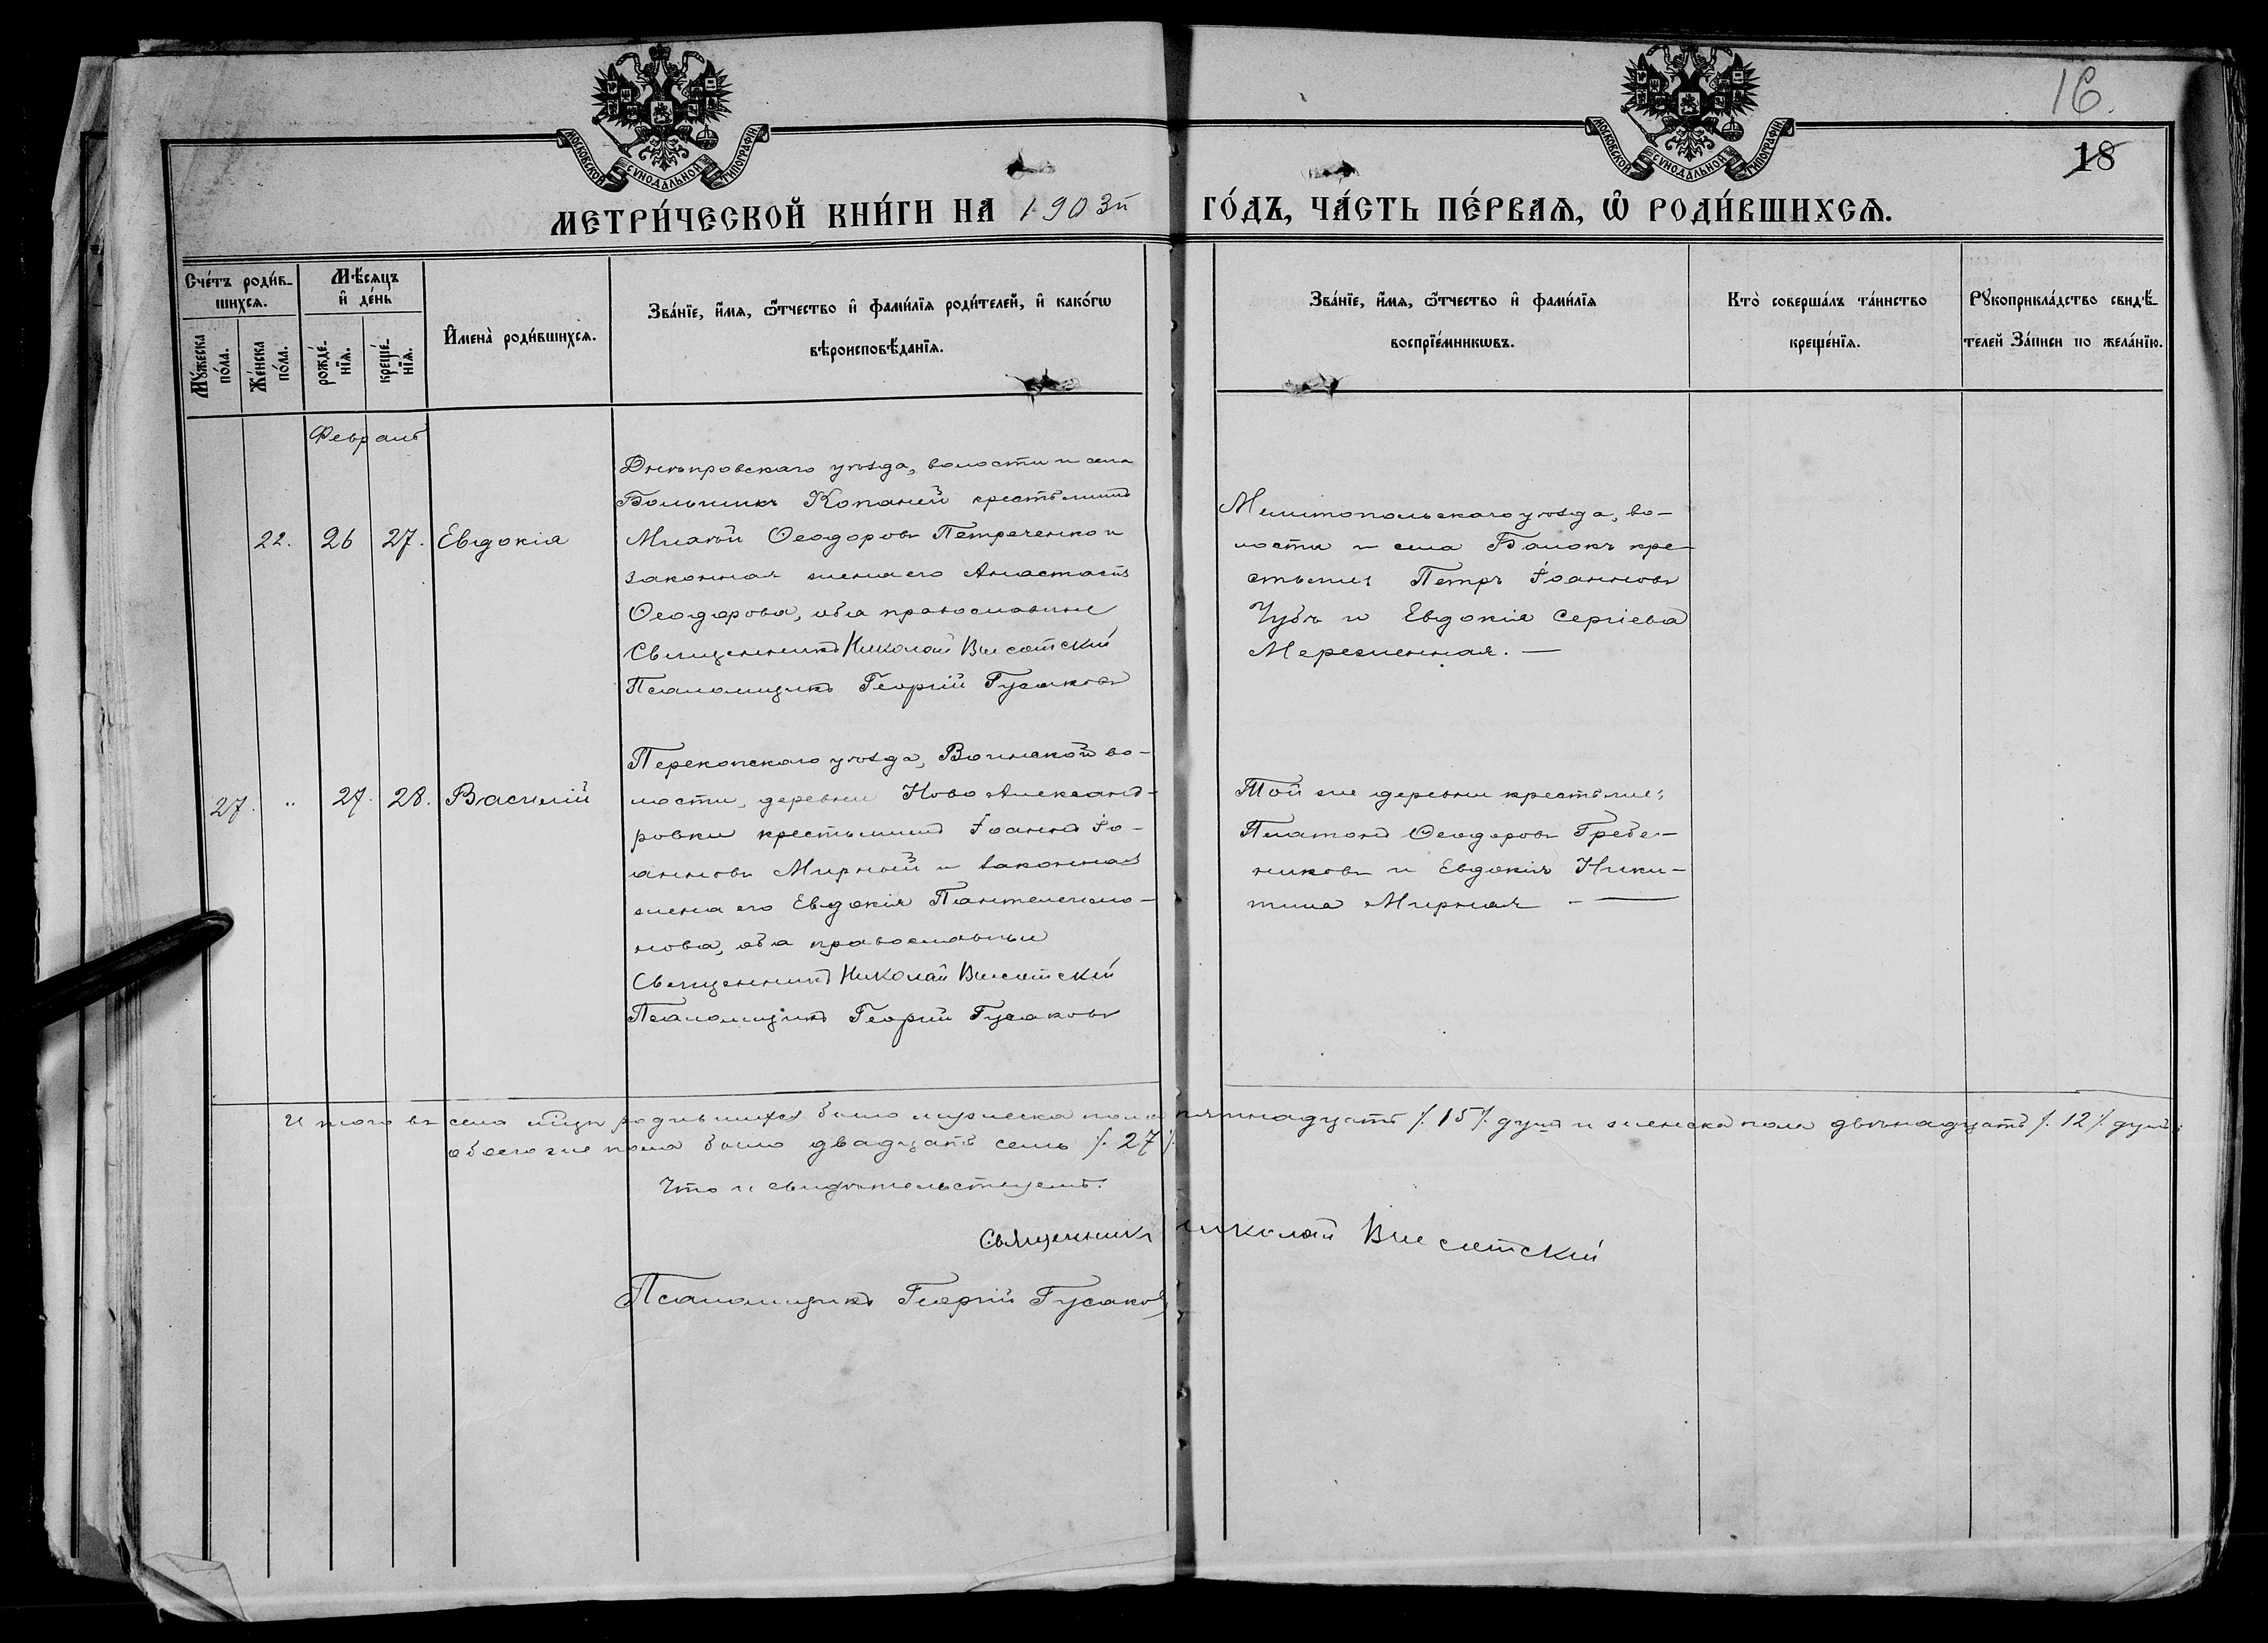 16.
18
МОСКОВСКОЙ СѴНОДАЛЬНОЙ ТИПОГРАФІИ.
МОСКОВСКОЙ СѴНОДАЛЬНОЙ ТИПОГРАФІИ.
МЕТРИ́ЧЕСКОЙ КНИ́ГИ НА 1903й ГО́ДЪ, ЧА́СТЬ ПЕ́РВАЯ, Ѡ РОДИ́ВШИХСЯ.
Сче́тъ роди́в-
шихся.
Мѣ́сяцъ
и де́нь
Му́жеска
по́ла.
Же́нска
по́ла.
рожде́-
нїя.
креще́-
нїя.
Имена̀ роди́вшихся.
Зва́нїе, и́мя, ѻ́тчество и фами́лїя роди́телей, и како́гѡ
вѣроисповѣ́данїя.
Зва́нїе, и́мя, ѻ́тчество и фами́лїя
воспрїе́мникѡвъ.
Кто̀ соверша́лъ та́инство
креще́нїя.
Рукоприкла́дство свидѣ́-
телей за́писи по жела́нїю.
Февраль
22. 26 27. Евдокія
Днѣпровскаго уѣзда, волости и села
Большихъ Копаней крестьянинъ
Ѳеодоровъ Петреченко и
законная жена его Анастасія
Ѳеодорова, оба православные
Священникъ Николай Высотскій
Псаломщикъ Георгій Гусаковъ
Мелитопольскаго уѣзда, во-
лости и села Балокъ кре-
стьяне Петръ Іоанновъ
Чубъ и Евдокія Сергіева
Мережинная. —
27. " 27. 28. Василій
Перекопскаго уѣзда, Воинской во-
лости, деревни Ново Александ-
ровки крестьянинъ Іоаннъ Іо-
анновъ Мирный и законная
жена его Евдокія Пантелеимо-
нова, оба православные
Священникъ Николай Высотскій
Псаломщикъ Георгій Гусаковъ
Той же деревни крестьяне:
Платонъ Ѳеодоровъ Гребе-
никовъ и Евдокія Ники-
тина Мирная - —
Итого въ семъ м͠цѣ родившихся было мужеска пола пятнадцать /. 15 /. душъ и женска пола двѣнадцать /. 12 /. душъ;
обоего же пола было двадцать семь /. 27 /.
Что и свидѣтельствуемъ:
Священникъ Николай Высотскій
Псаломщикъ Георгій Гусаковъ